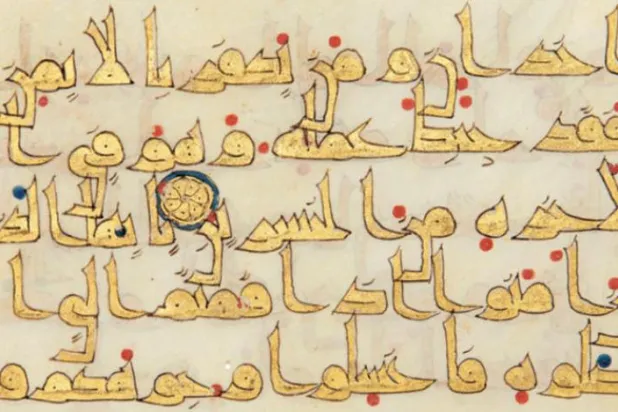 اخدان ومن يكفر بالايمن
فقد حبط عمله وهو في ا
لاخره من الخسرين يايها الذ
ين امنوا اذا قمتم الى ا
لصلوه فاغسلوا وجوهكم و